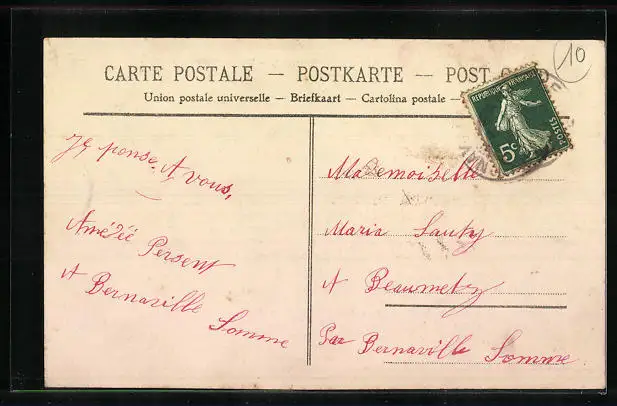 CARTE POSTALE — POSTKARTE — POST
Union postale universelle – Briefkaart – Cartolina postale –
10
REPUBLIQUE FRANÇAISE
POSTES
5c
Je pense A vous,
Amédée Persent
A Bernaville
Somme
Mademoiselle
Maria Lauty
A Beaumetz
Par Bernaville Somme